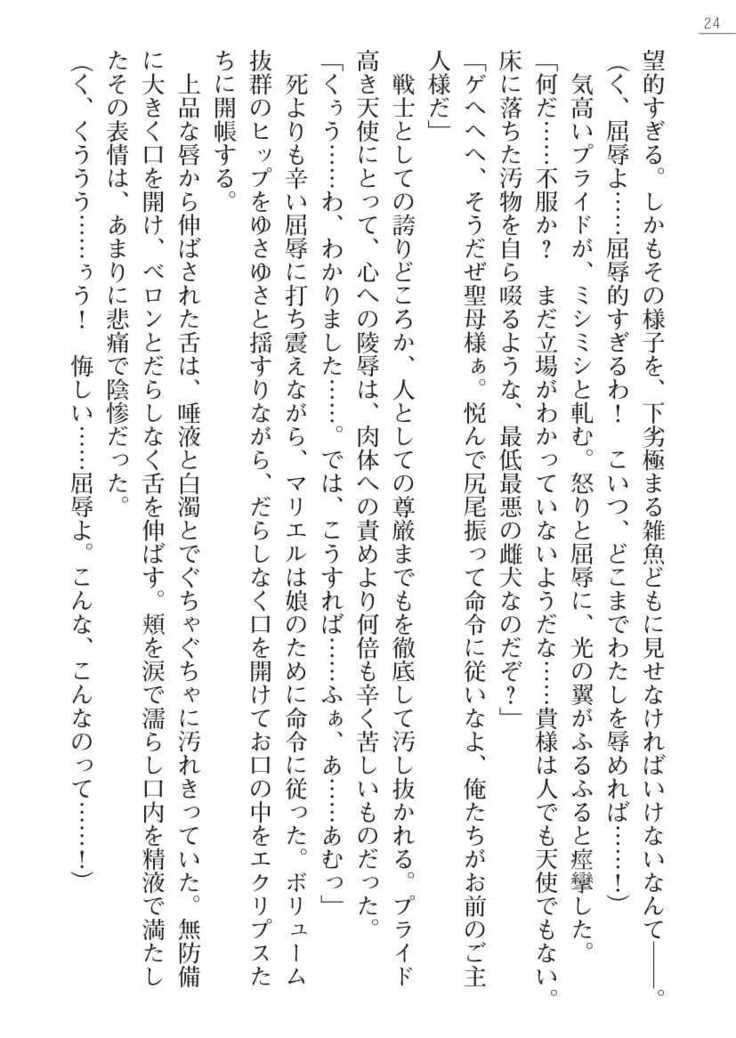 24
望的すぎる。しかもその様子を、下劣極まる雑魚どもに見せなければいけないなんて――。
（く、屈辱よ……屈辱的すぎるわ！　こいつ、どこまでわたしを辱めれば……！）
気高いプライドが、ミシミシと軋む。怒りと屈辱に、光の翼がふるふると痙攣した。
「何だ……不服か？　まだ立場がわかっていないようだな……貴様は人でも天使でもない。
床に落ちた汚物を自ら啜るような、最低最悪の雌犬なのだぞ？」
「ゲヘヘヘ、そうだぜ聖母様ぁ。悦んで尻尾振って命令に従いなよ、俺たちがお前のご主
人様だ」
戦士としての誇りどころか、人としての尊厳までもを徹底して汚し抜かれる。プライド
高き天使にとって、心への陵辱は、肉体への責めより何倍も辛く苦しいものだった。
「くぅう……わ、わかりました……。では、こうすれば……ふぁ、あ……あむっ」
死よりも辛い屈辱に打ち震えながら、マリエルは娘のために命令に従った。ボリューム
抜群のヒップをゆさゆさと揺すりながら、だらしなく口を開けてお口の中をエクリプスた
ちに開帳する。
上品な唇から伸ばされた舌は、唾液と白濁とでぐちゃぐちゃに汚れきっていた。無防備
に大きく口を開け、ベロンとだらしなく舌を伸ばす。頬を涙で濡らし口内を精液で満たし
たその表情は、あまりに悲痛で陰惨だった。
（く、くううう……ぅう！　悔しい……屈辱よ。こんな、こんなのって……！）